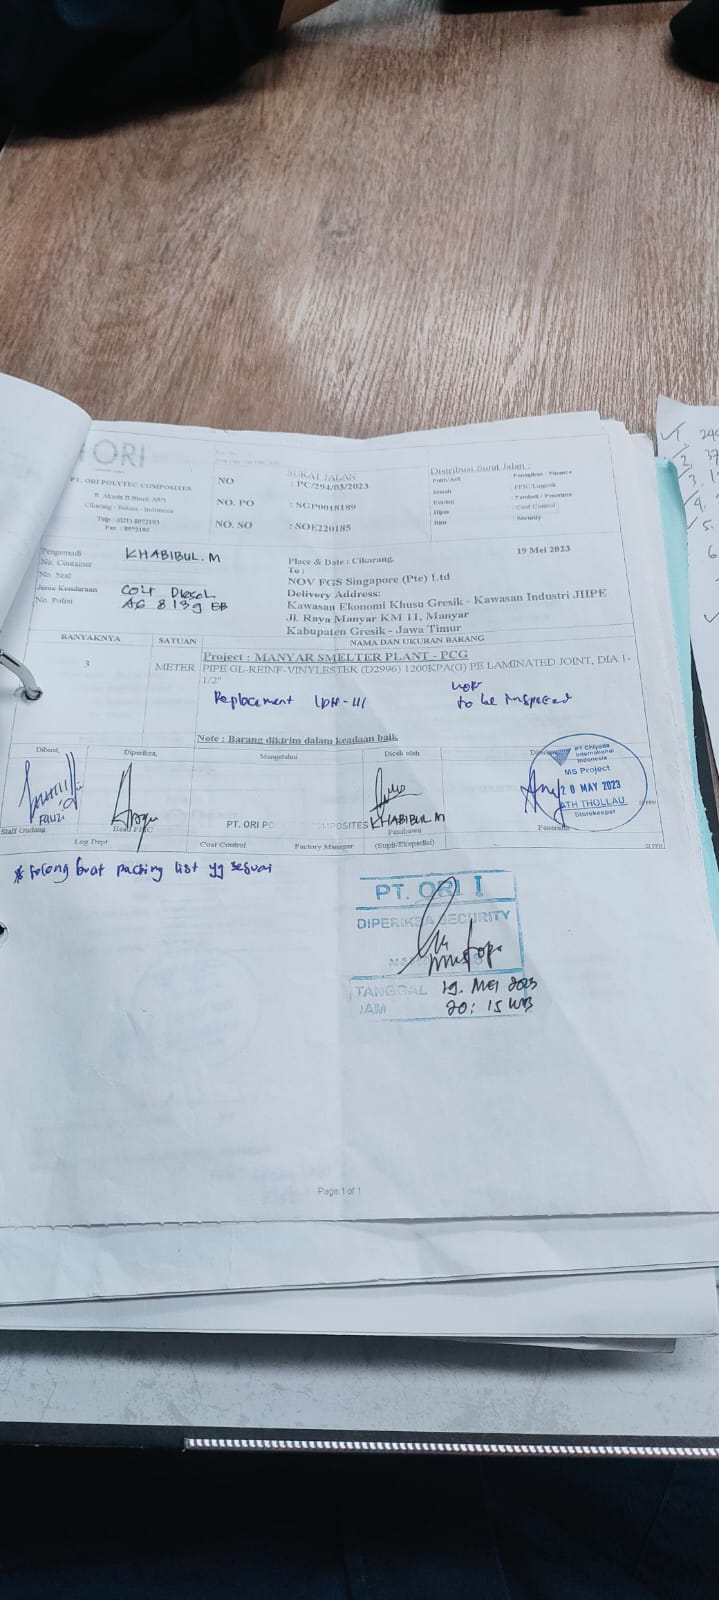 ORI
PT. ORI POLYTEC COMPOSITES
Cikarang - Bekasi - Indonesia
Telp : (021) 8972193
Fax : 8972192
SURAT JALAN
NO : PC/294/03/2023
NO. PO : SGP0018189
NO. SO : SOE220185
Distribusi Surat Jalan :
Putih/Asli : Penagihan / Finance
Merah : PPIC/Logistik
Kuning : Pembeli / Penerima
Hijau : Cost Control
Biru : Security
Pengemudi KHABIBUL. M
No. Container
No. Seal
Jenis Kendaraan COLT DIESEL
No. Polisi AG 8139 EB
Place & Date : Cikarang, 19 Mei 2023
To :
NOV FGS Singapore (Pte) Ltd
Delivery Address:
Kawasan Ekonomi Khusu Gresik - Kawasan Industri JIIPE
Jl. Raya Manyar KM 11, Manyar
Kabupaten Gresik - Jawa Timur
BANYAKNYA SATUAN NAMA DAN UKURAN BARANG
Project : MANYAR SMELTER PLANT - PCG
3 METER PIPE GL-REINF-VINYLESTER (D2996) 1200KPA(G) PE LAMINATED JOINT, DIA 1-
1/2"
Replacement
to be inspected
Note : Barang dikirim dalam keadaan baik
Dibuat, Diperiksa, Mengetahui Dicek oleh
PT Chiyoda
International
Indonesia
MS Project
20 MAY 2023
ATH THOLLAU
Storekeeper
FAUZI
PT. ORI COMPOSITES
KHABIBUL M
Staff Gudang Head PPIC Pembawa Penerima
Log Dept Cost Control Factory Manager (Supir/Ekspedisi)
* tolong buat packing list yg sesuai
PT. ORI I
DIPERIKSA SECURITY
TANGGAL 19. MEI 2023
JAM 20: 15 WIB
Page 1 of 1